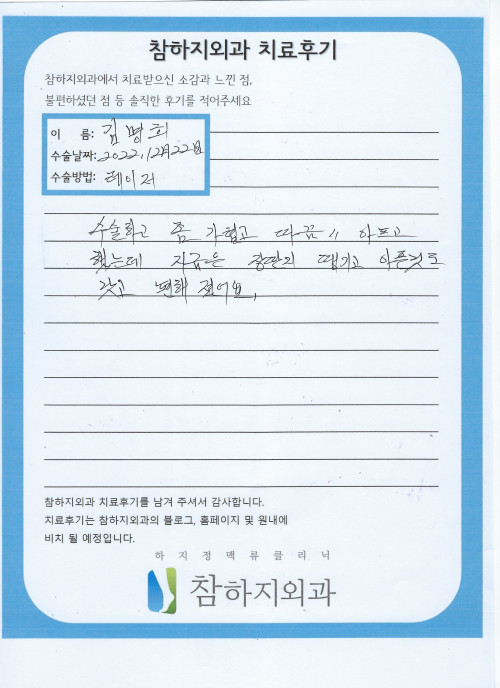 참하지외과 치료후기
참하지외과에서 치료받으신 소감과 느낀 점,
불편하셨던 점 등 솔직한 후기를 적어주세요
이 름: 김명희
수술날짜: 2022, 12월22일
수술방법: 레이저
수술하고 좀 가렵고 따끔〃 아프고
했는데 지금은 장딴지 땡기고 아픈것도
갖고 편해 졌어요,
참하지외과 치료후기를 남겨 주셔서 감사합니다.
치료후기는 참하지외과의 블로그, 홈페이지 및 원내에
비치 될 예정입니다.
하지정맥류클리닉
참하지외과